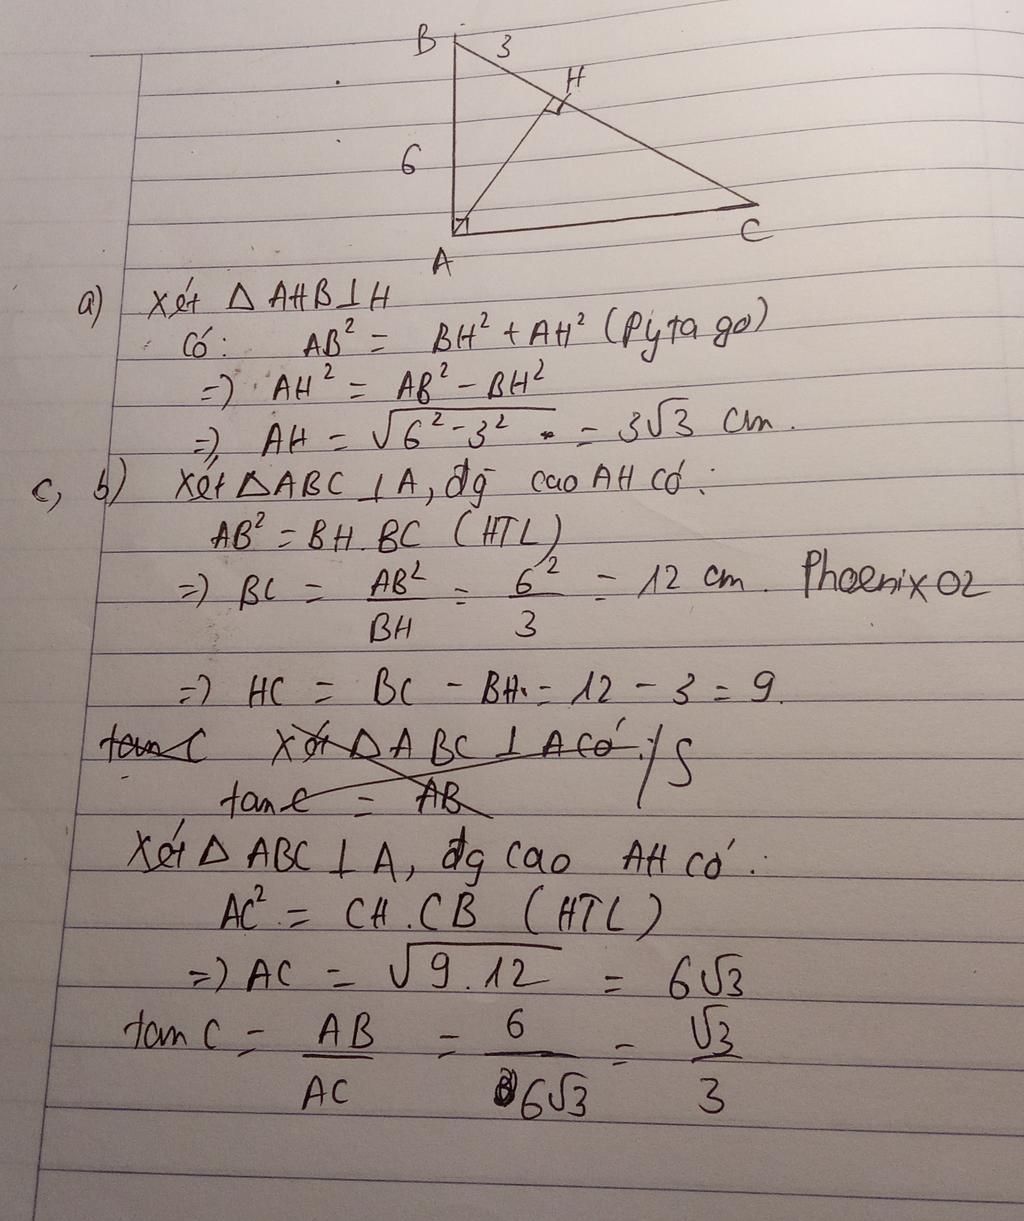 B 3
H
6
A
C
a) Xét Δ AHB ⊥ H
Có: AB² = BH² + AH² (Pytago)
=> AH² = AB² - BH²
=> AH = √6² - 3² = 3√3 cm.
c, b) Xét ΔABC ⊥ A, đg cao AH có:
AB² = BH. BC (HTL)
=> BC = AB²/BH = 6²/3 = 12 cm. Phoenix02
=> HC = BC - BH = 12 - 3 = 9.
tan C Xét Δ ABC ⊥ A có: /S
tan C = AB
Xét Δ ABC ⊥ A, đg cao AH có:
AC² = CH.CB (HTL)
=> AC = √9.12 = 6√3
tan C = AB/AC = 6/6√3 = √3/3